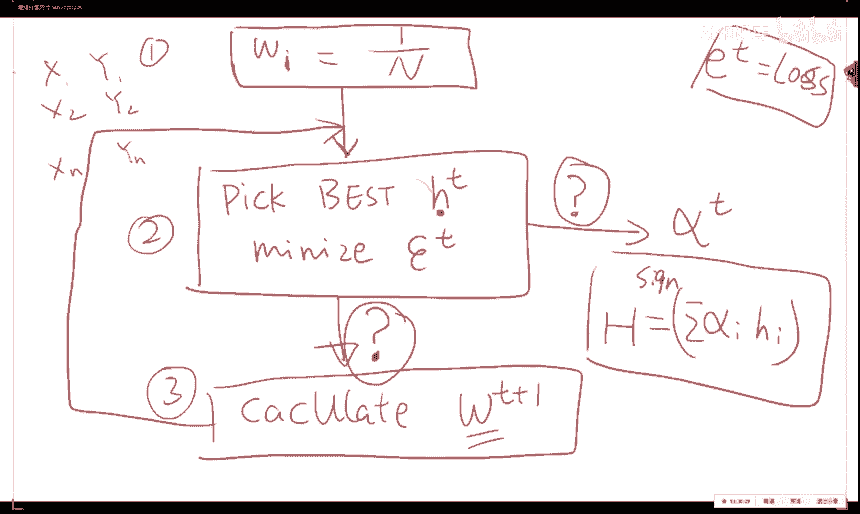 ①
Wᵢ = 1/N
X₁ Y₁
X₂ Y₂
Xn Yn
eᵗ = Loss
②
Pick BEST hᵗ
minize εᵗ
?
αᵗ
sign
H = (Σαᵢ hᵢ)
?
③
caculate Wᵗ⁺¹